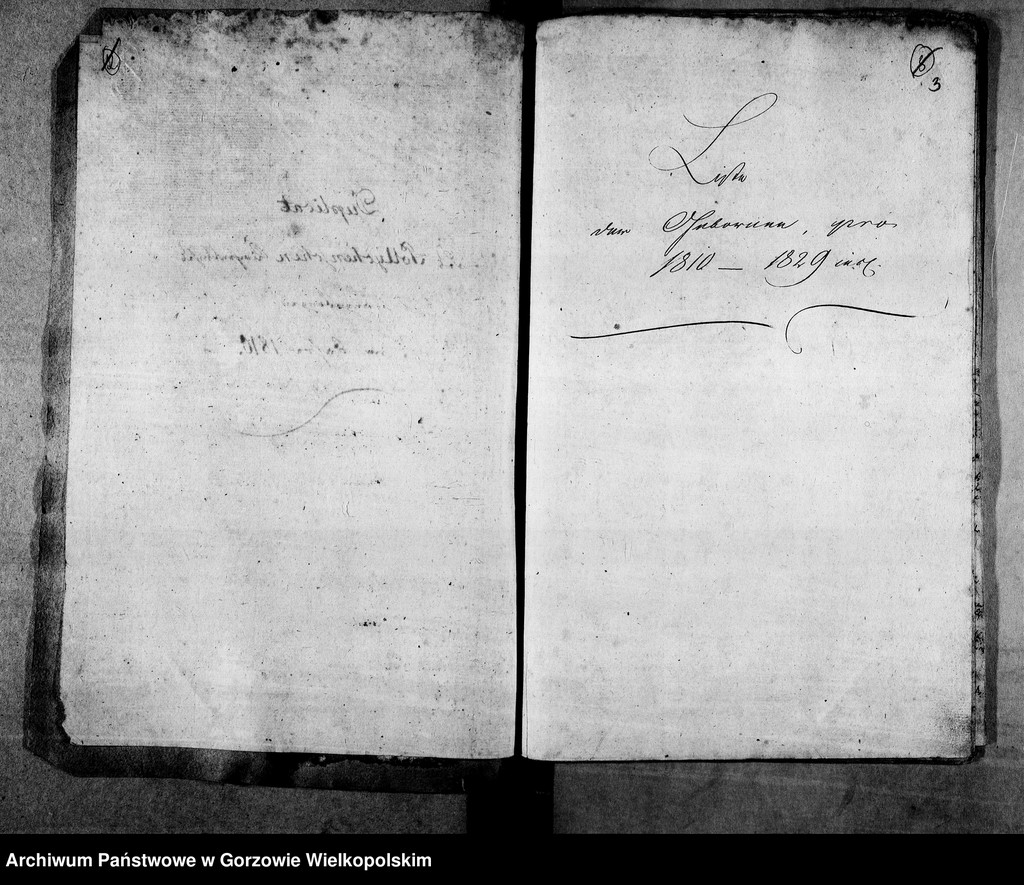 Duplicat
1810.
8
3
Liste
der Geborenen, pro
1810 — 1829 incl.
Archiwum Państwowe w Gorzowie Wielkopolskim